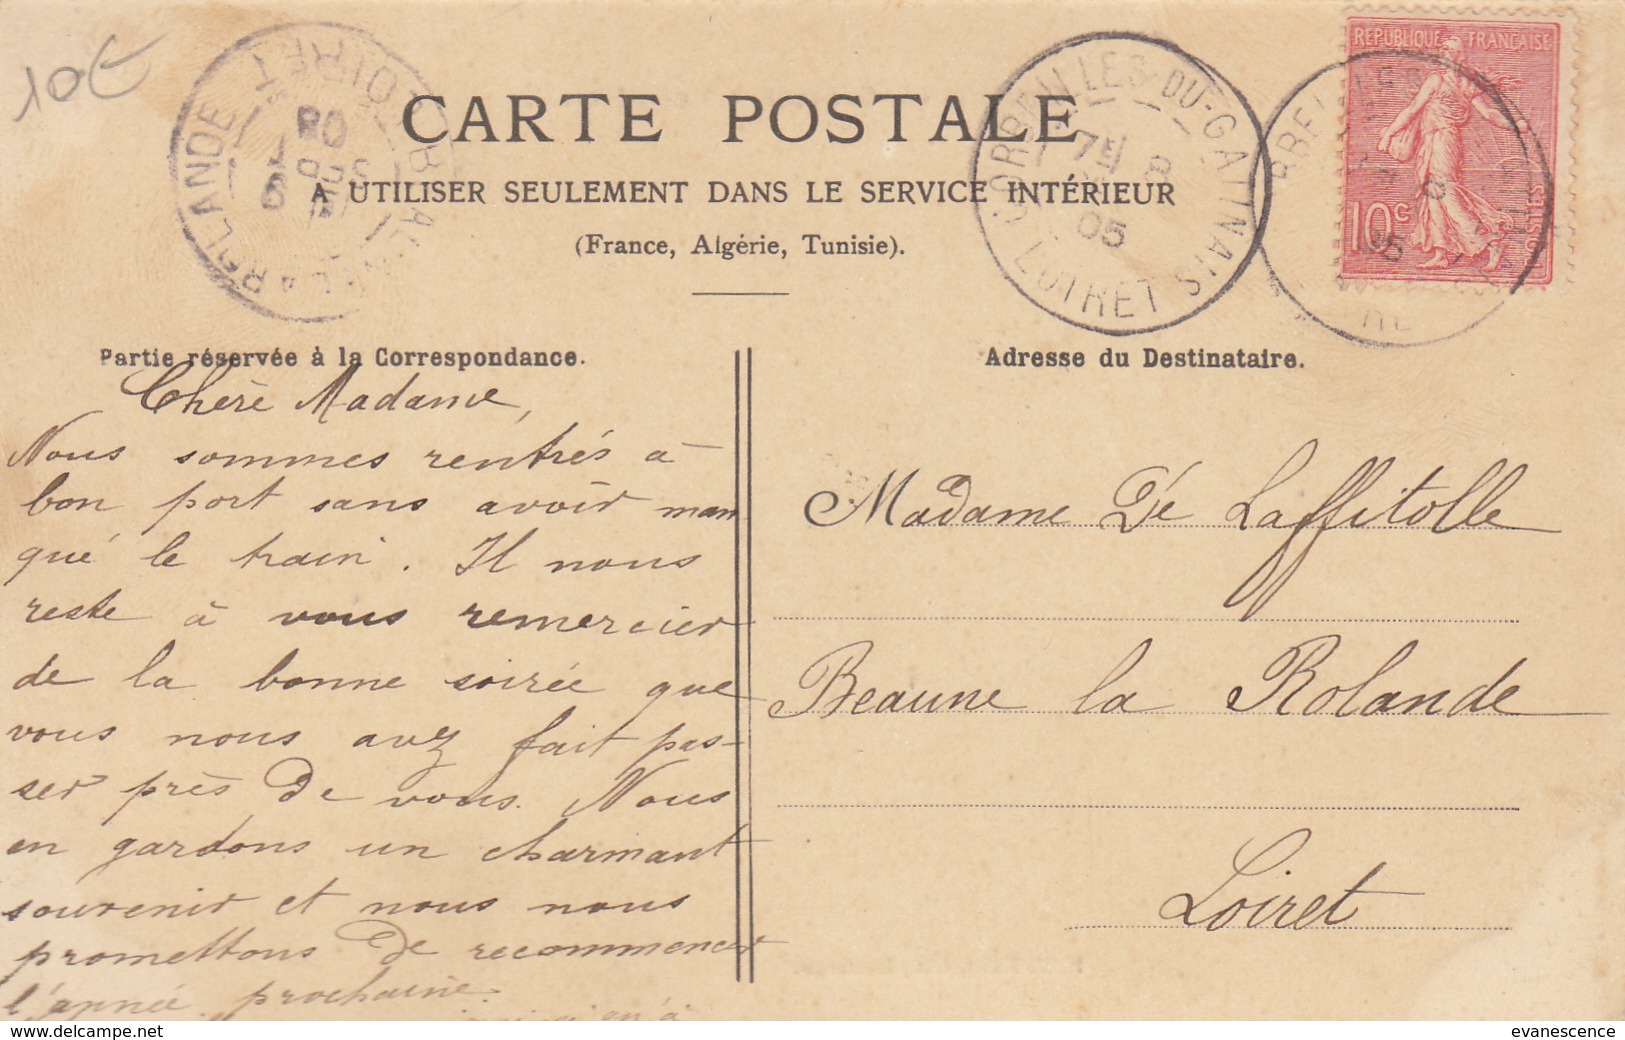 10€
CARTE POSTALE
A UTILISER SEULEMENT DANS LE SERVICE INTÉRIEUR
(France, Algérie, Tunisie).
REPUBLIQUE FRANÇAISE
10c
POSTES
CORBEILLES-DU-GATINAIS
7E 8
05
LOIRET
LOIRET
LA ROLANDE
Partie réservée à la Correspondance.
Chère Madame,
Nous sommes rentrés à
bon port sans avoir man
qué le train. Il nous
reste à vous remercier
de la bonne soirée que
vous nous avez fait pas-
ser près de vous. Nous
en gardons un charmant
souvenir et nous nous
promettons de recommencer
l'année prochaine.
Adresse du Destinataire.
Madame De Laffitolle
Beaune la Rolande
Loiret
www.delcampe.net
evanescence